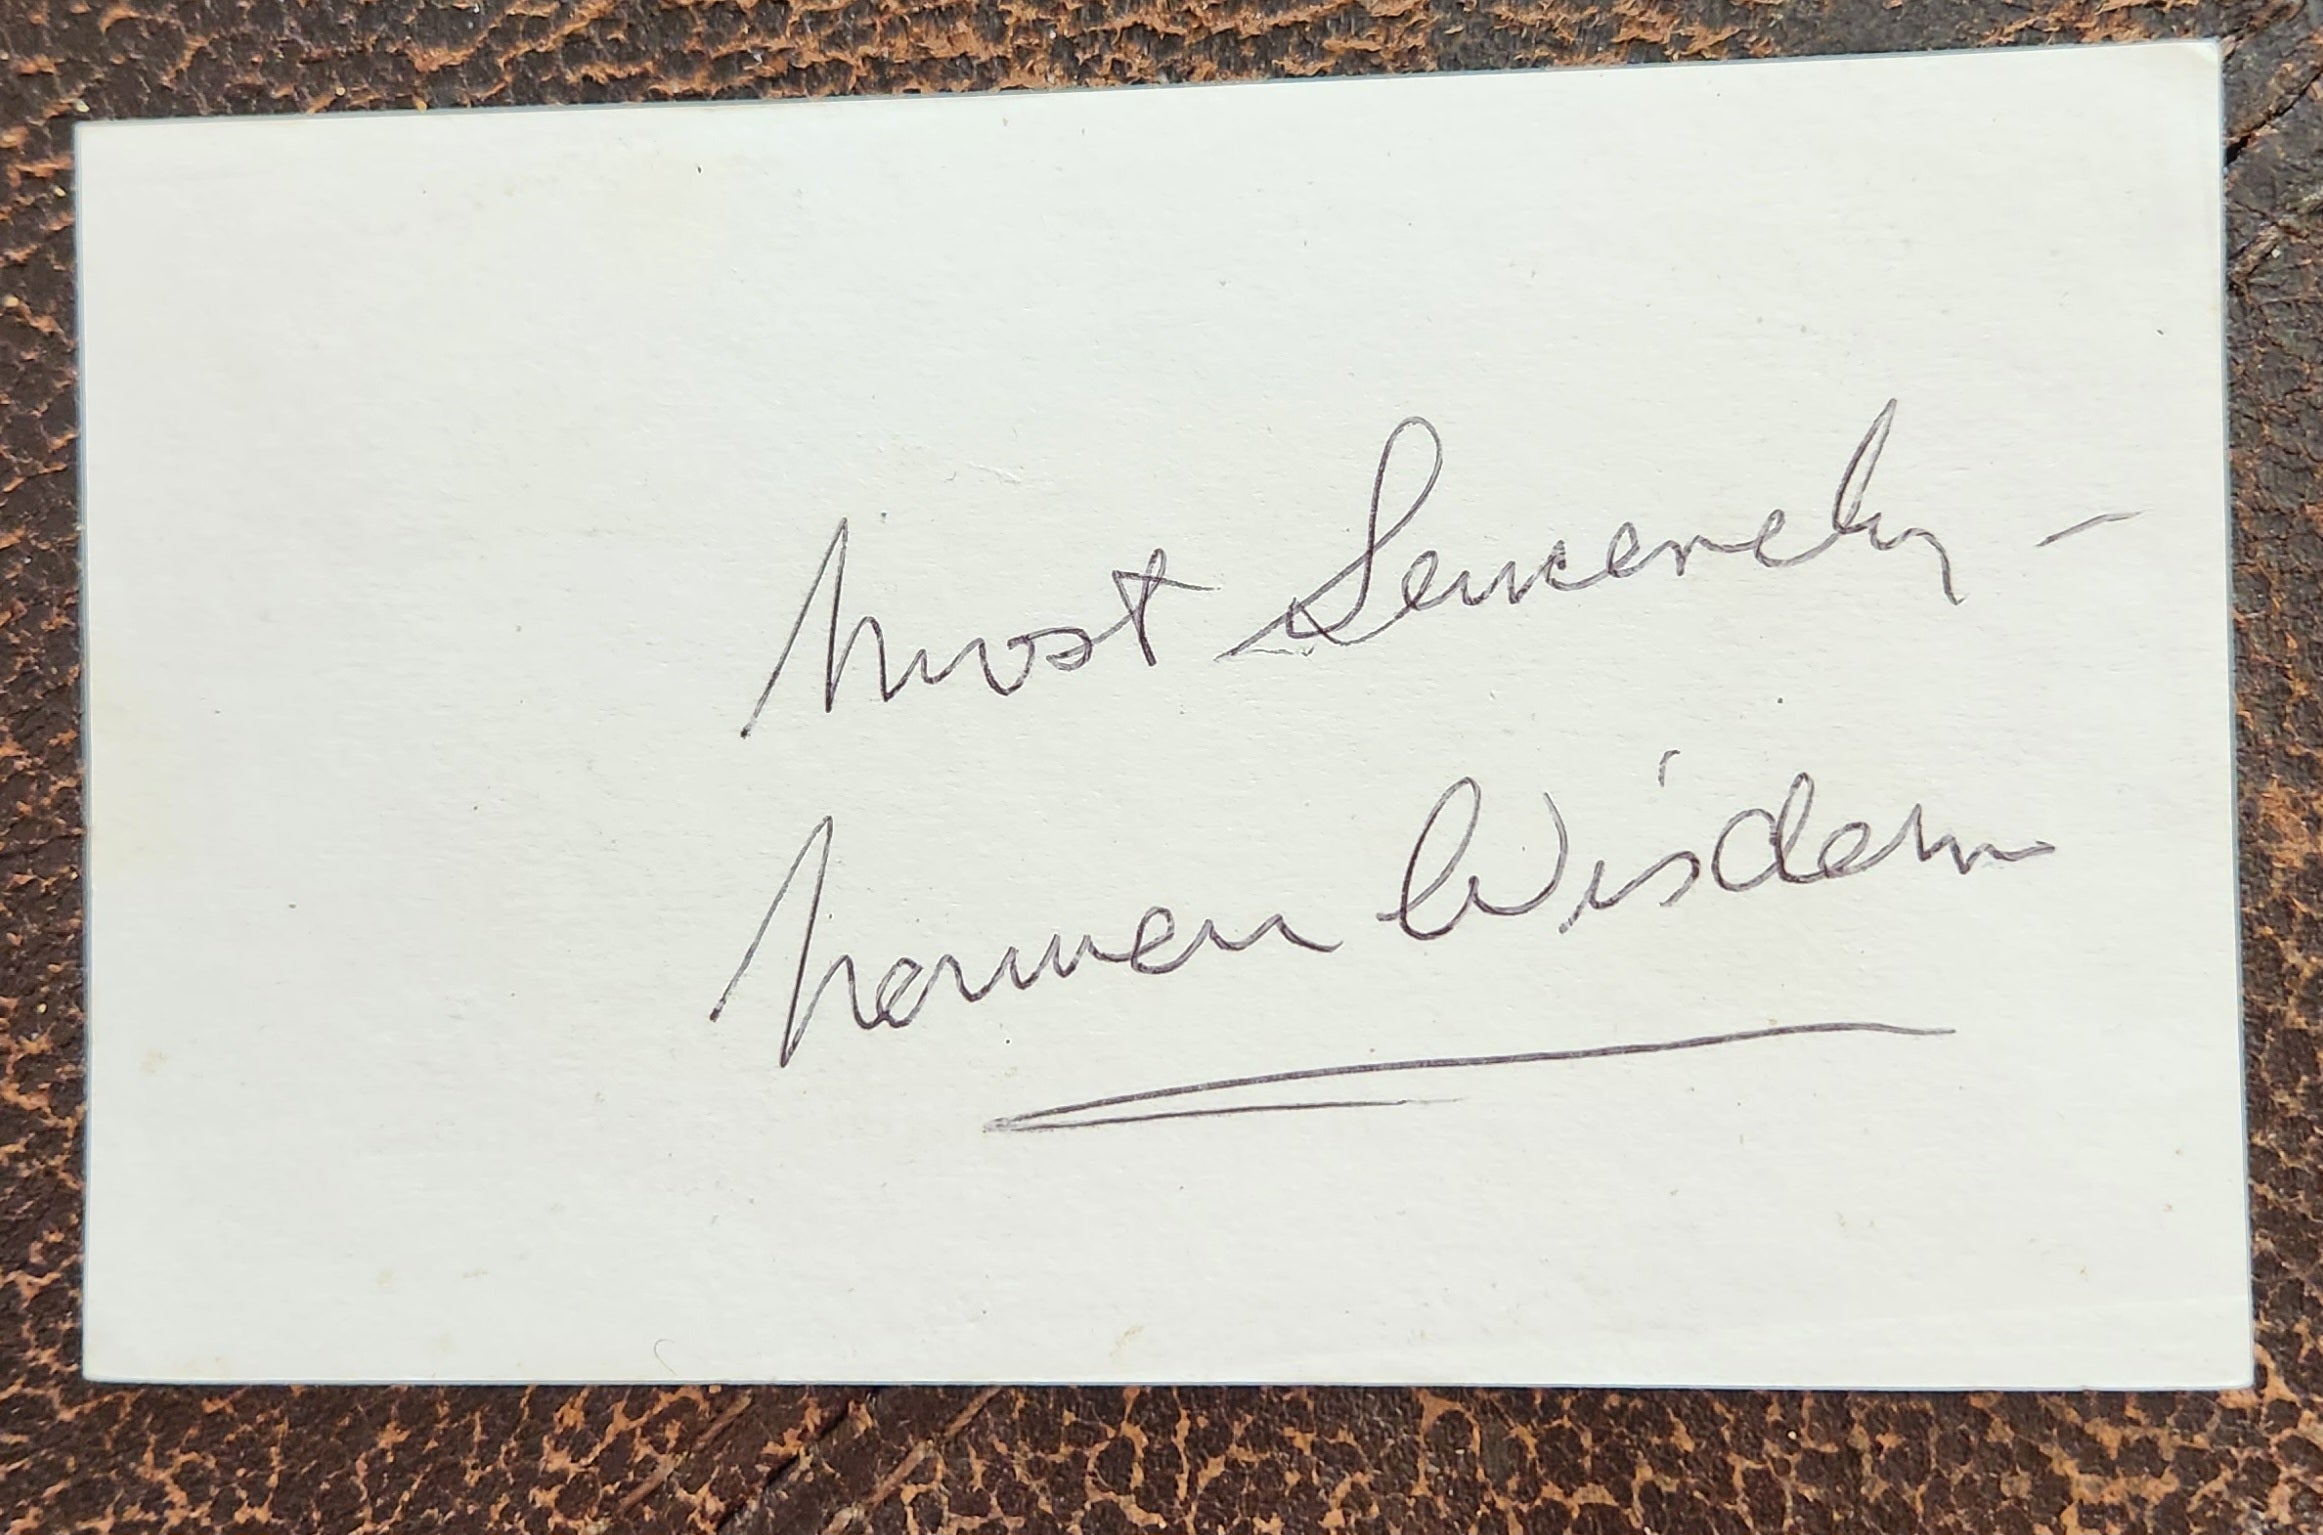 Most Sincerely -
Norman Wisdom